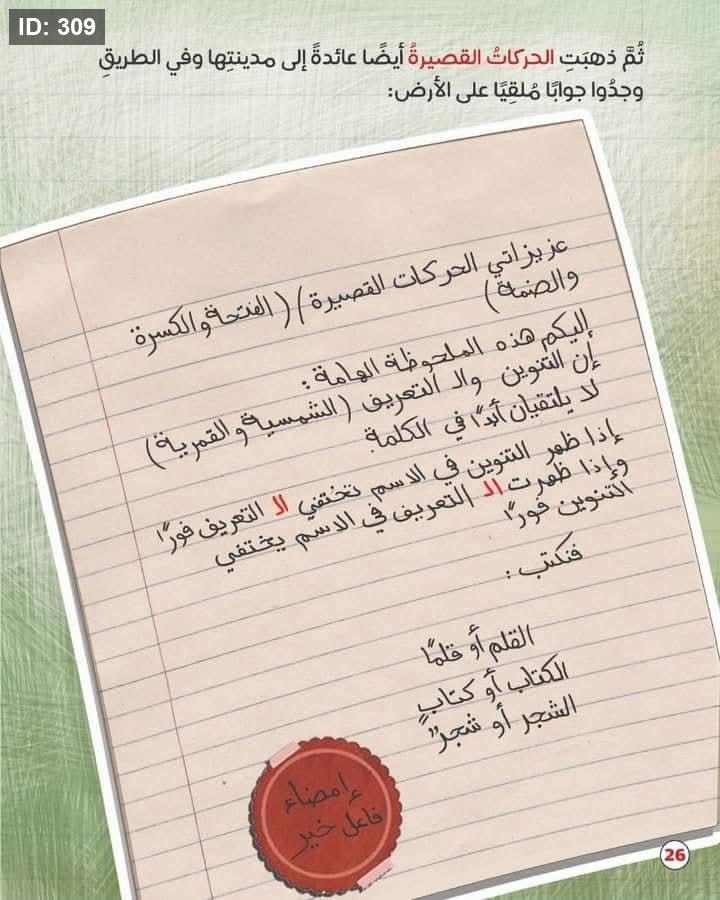 ID: 309
ثُمَّ ذهبَتِ الحركاتُ القصيرةُ أيضًا عائدةً إلى مدينتِها وفي الطريقِ
وجدُوا جوابًا مُلقِيًا على الأرض:
عزيزاتي الحركات القصيرة/(الفتحة والكسرة
والضمة)
إليكم هذه الملحوظة الهامة:
إن التنوين والـ التعريف (الشمسية والقمرية)
لا يلتقيان أبدًا في الكلمة.
إذا ظهر التنوين في الاسم تختفي الـ التعريف فورًا
وإذا ظهرت الـ التعريف في الاسم يختفي
التنوين فورًا
فنكتب:
القلم أو قلمًا
الكتاب أو كتابٍ
الشجر أو شجرٌ
إمضاء
فاعل خير
26